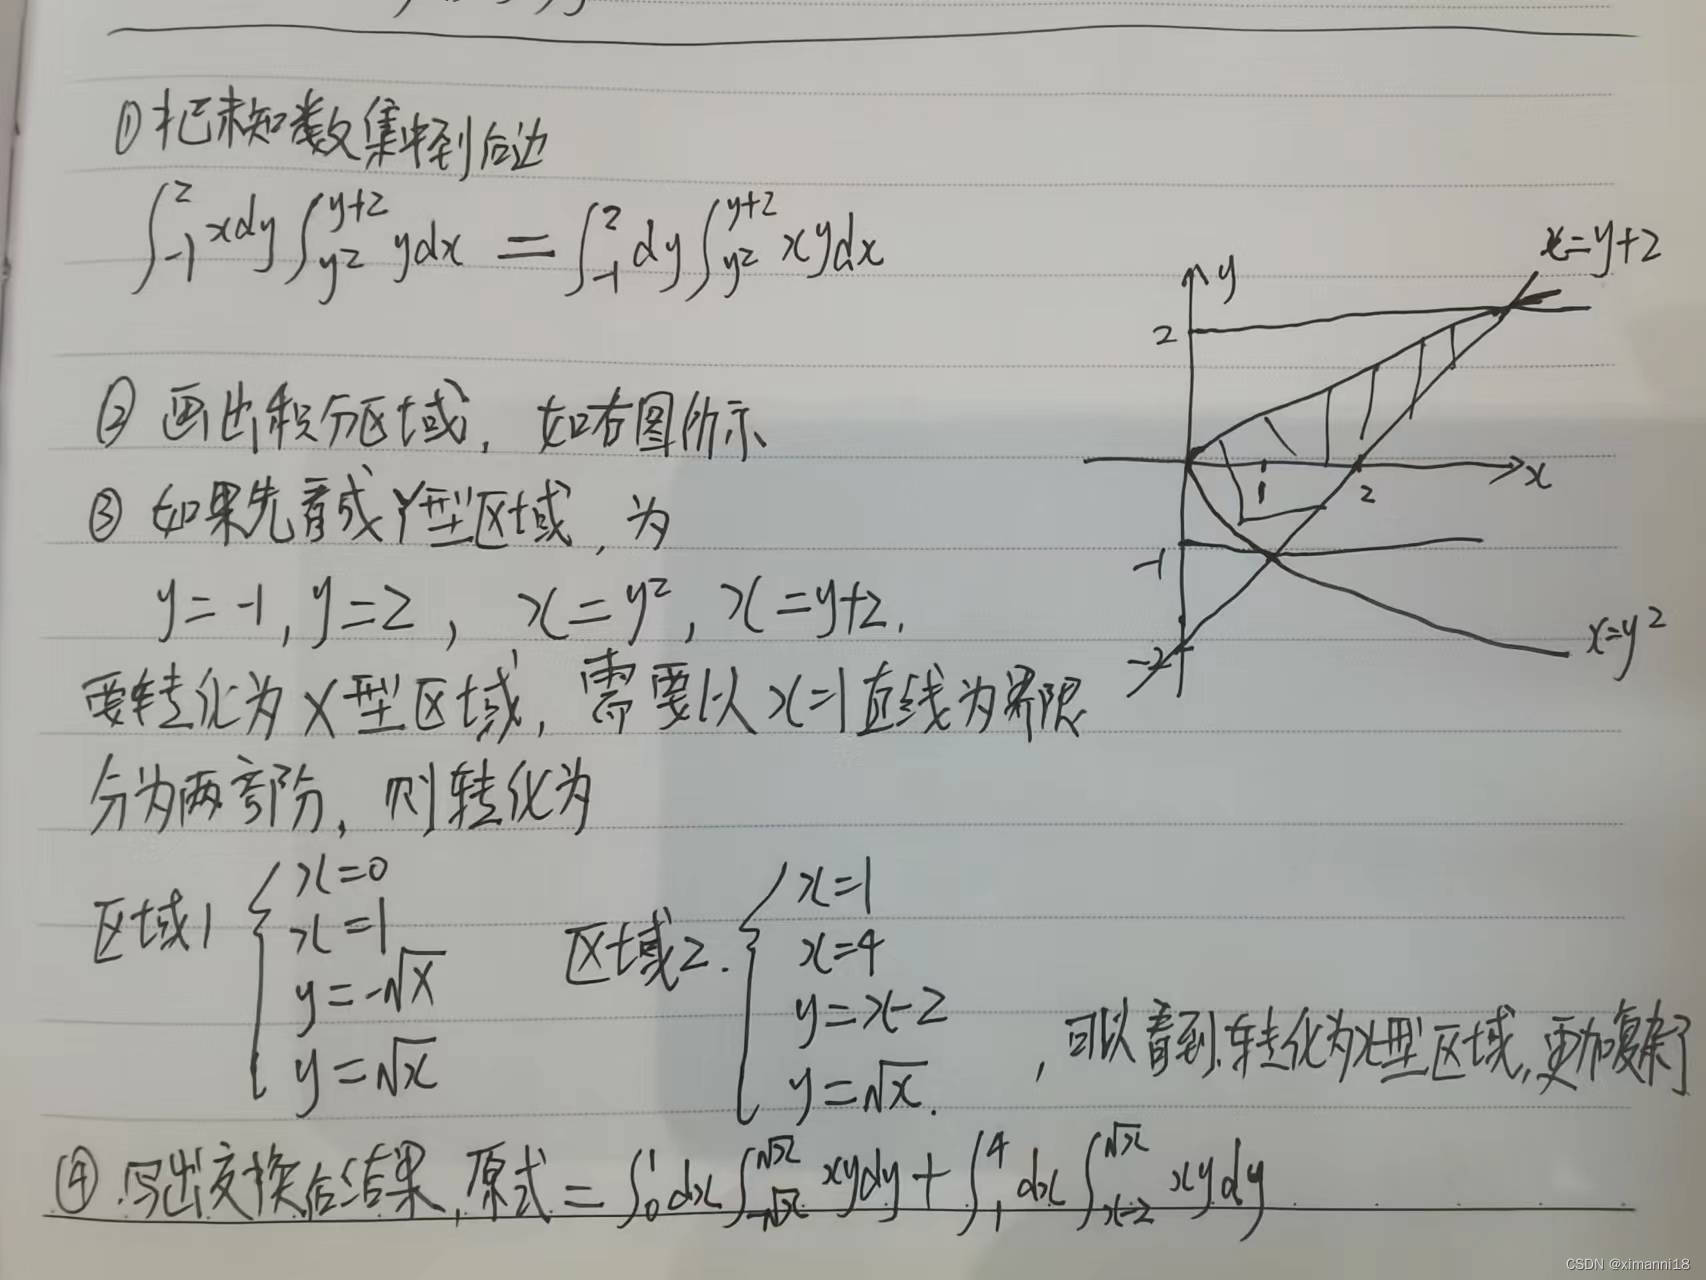 ①把未知数集中到后边
∫_{-1}^{2} xdy ∫_{y²}^{y+2} ydx = ∫_{-1}^{2} dy ∫_{y²}^{y+2} xydx
② 画出积分区域, 如右图所示
③ 如果先看成Y型区域, 为
y=-1, y=2, x=y², x=y+2.
要转化为X型区域, 需要以x=1直线为界限
分为两部分, 则转化为
区域1 { x=0
x=1
y=-√x
y=√x
区域2. { x=1
x=4
y=x-2
y=√x.
, 可以看到, 转化为x型区域, 更加复杂了
④ 写出交换后结果, 原式 = ∫_{0}^{1} dx ∫_{-√x}^{√x} xydy + ∫_{1}^{4} dx ∫_{x-2}^{√x} xydy
x=y+2
y
2
x
1
2
-1
-2
x=y²
CSDN @ximanni18